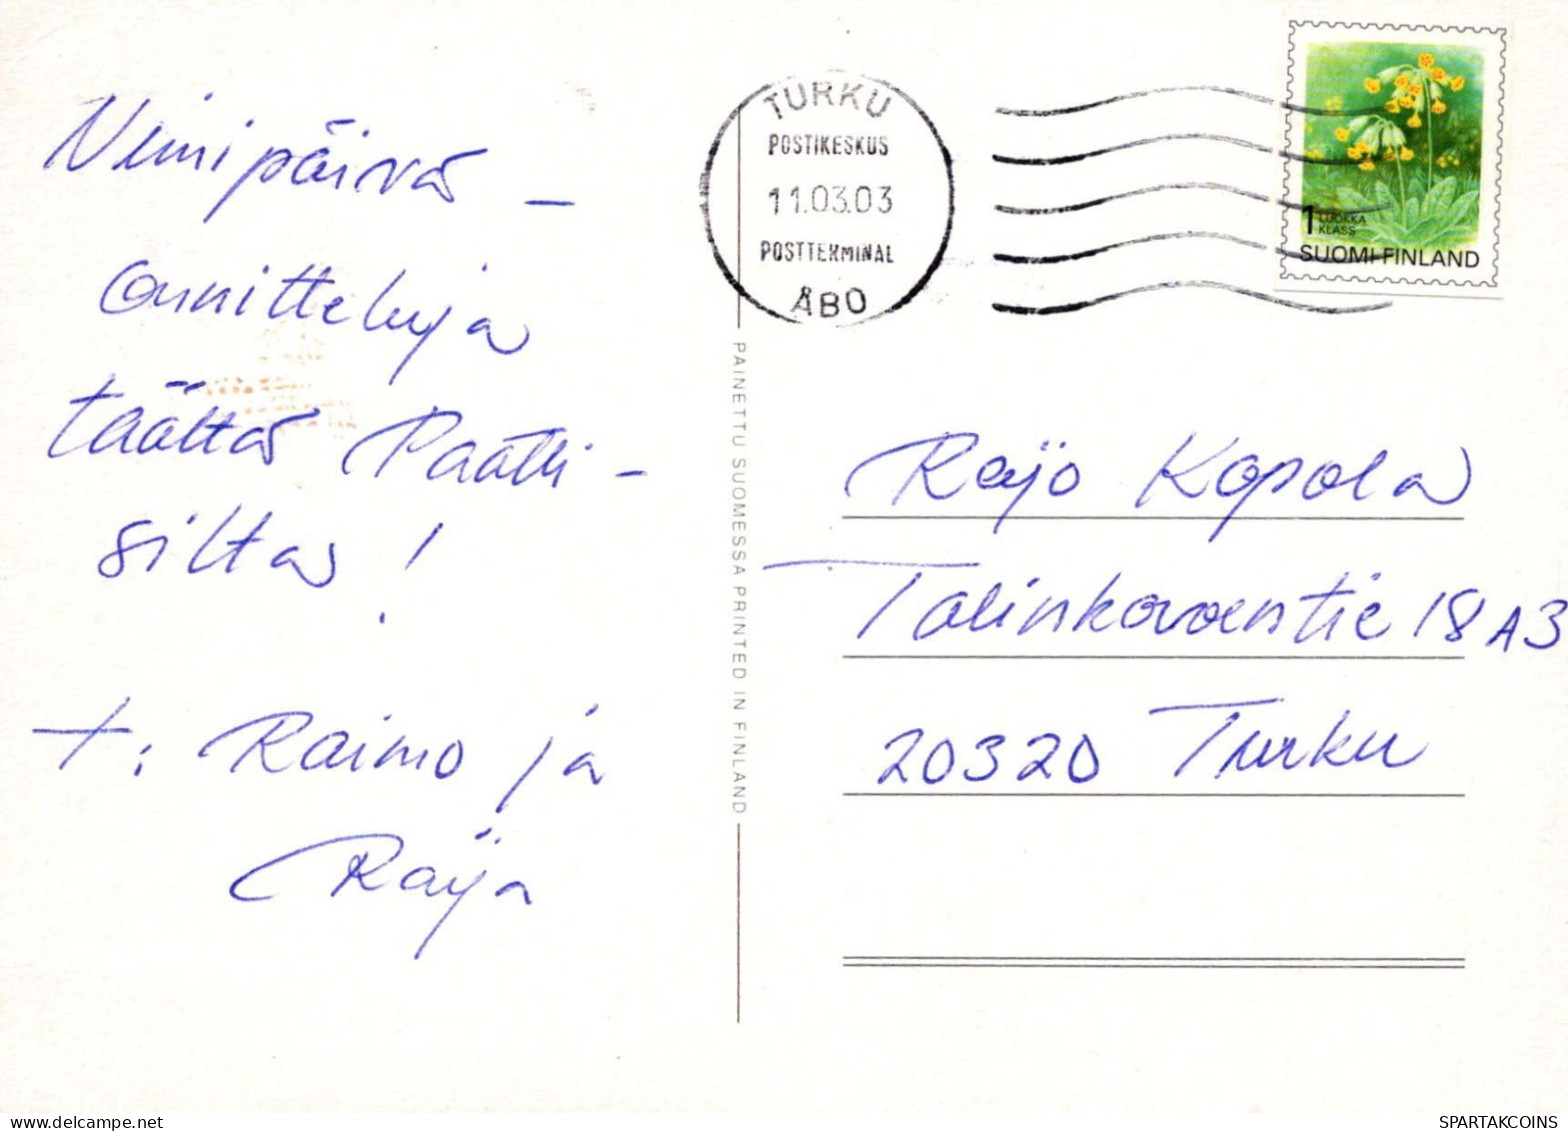 Nimipäivä-
onnitteluja
täältä Paatti-
silta!
t: Raimo ja
Raija
TURKU
POSTIKESKUS
11.03.03
POSTTERMINAL
ÅBO
1 LUOKKA
KLASS
SUOMI-FINLAND
PAINETTU SUOMESSA PRINTED IN FINLAND
Reijo Kopola
Talinkorventie 18 A3
20320 Turku
SPARTAKCOINS